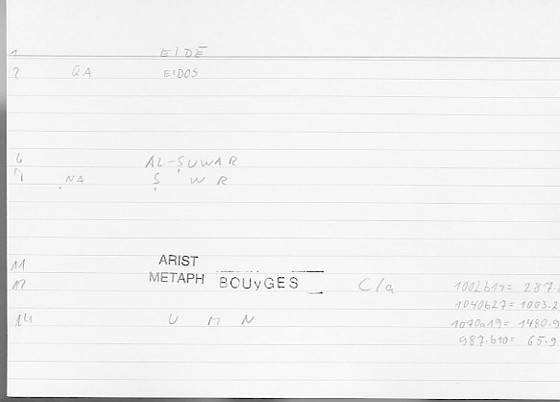 1 EIDĒ
2 QA EIDOS
6 AL-ṢUWAR
7 ṆA Ṣ W R
11 ARIST
12 METAPH BOUyGES C/a 1002b14= 287.
1040b27= 1003.2
14 U M N 1070a19= 1480.9
987.b10= 65.9